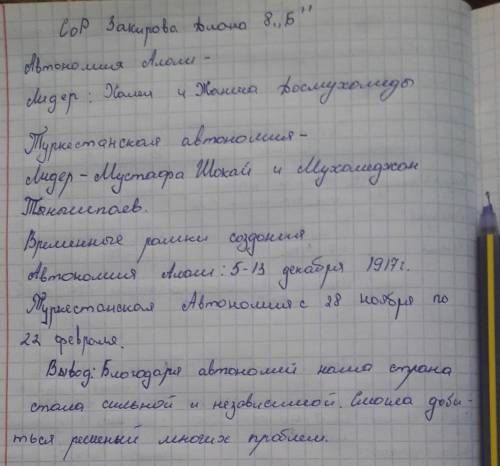 СоР Закирова Диана 8 „Б"
Автономия Алаш -
Лидер: Халел и Жанша Досмухамеды
Туркестанская автономия -
Лидер - Мустафа Шокай и Мухамеджан
Тынышпаев.
Временные рамки создания
Автономия Алаш: 5-13 декабря 1917г.
Туркестанская Автономия с 28 ноября по
22 февраля.
Вывод: Благодаря автономий наша страна
стала сильной и независимой. Смогла доби-
ться решений многих проблем.